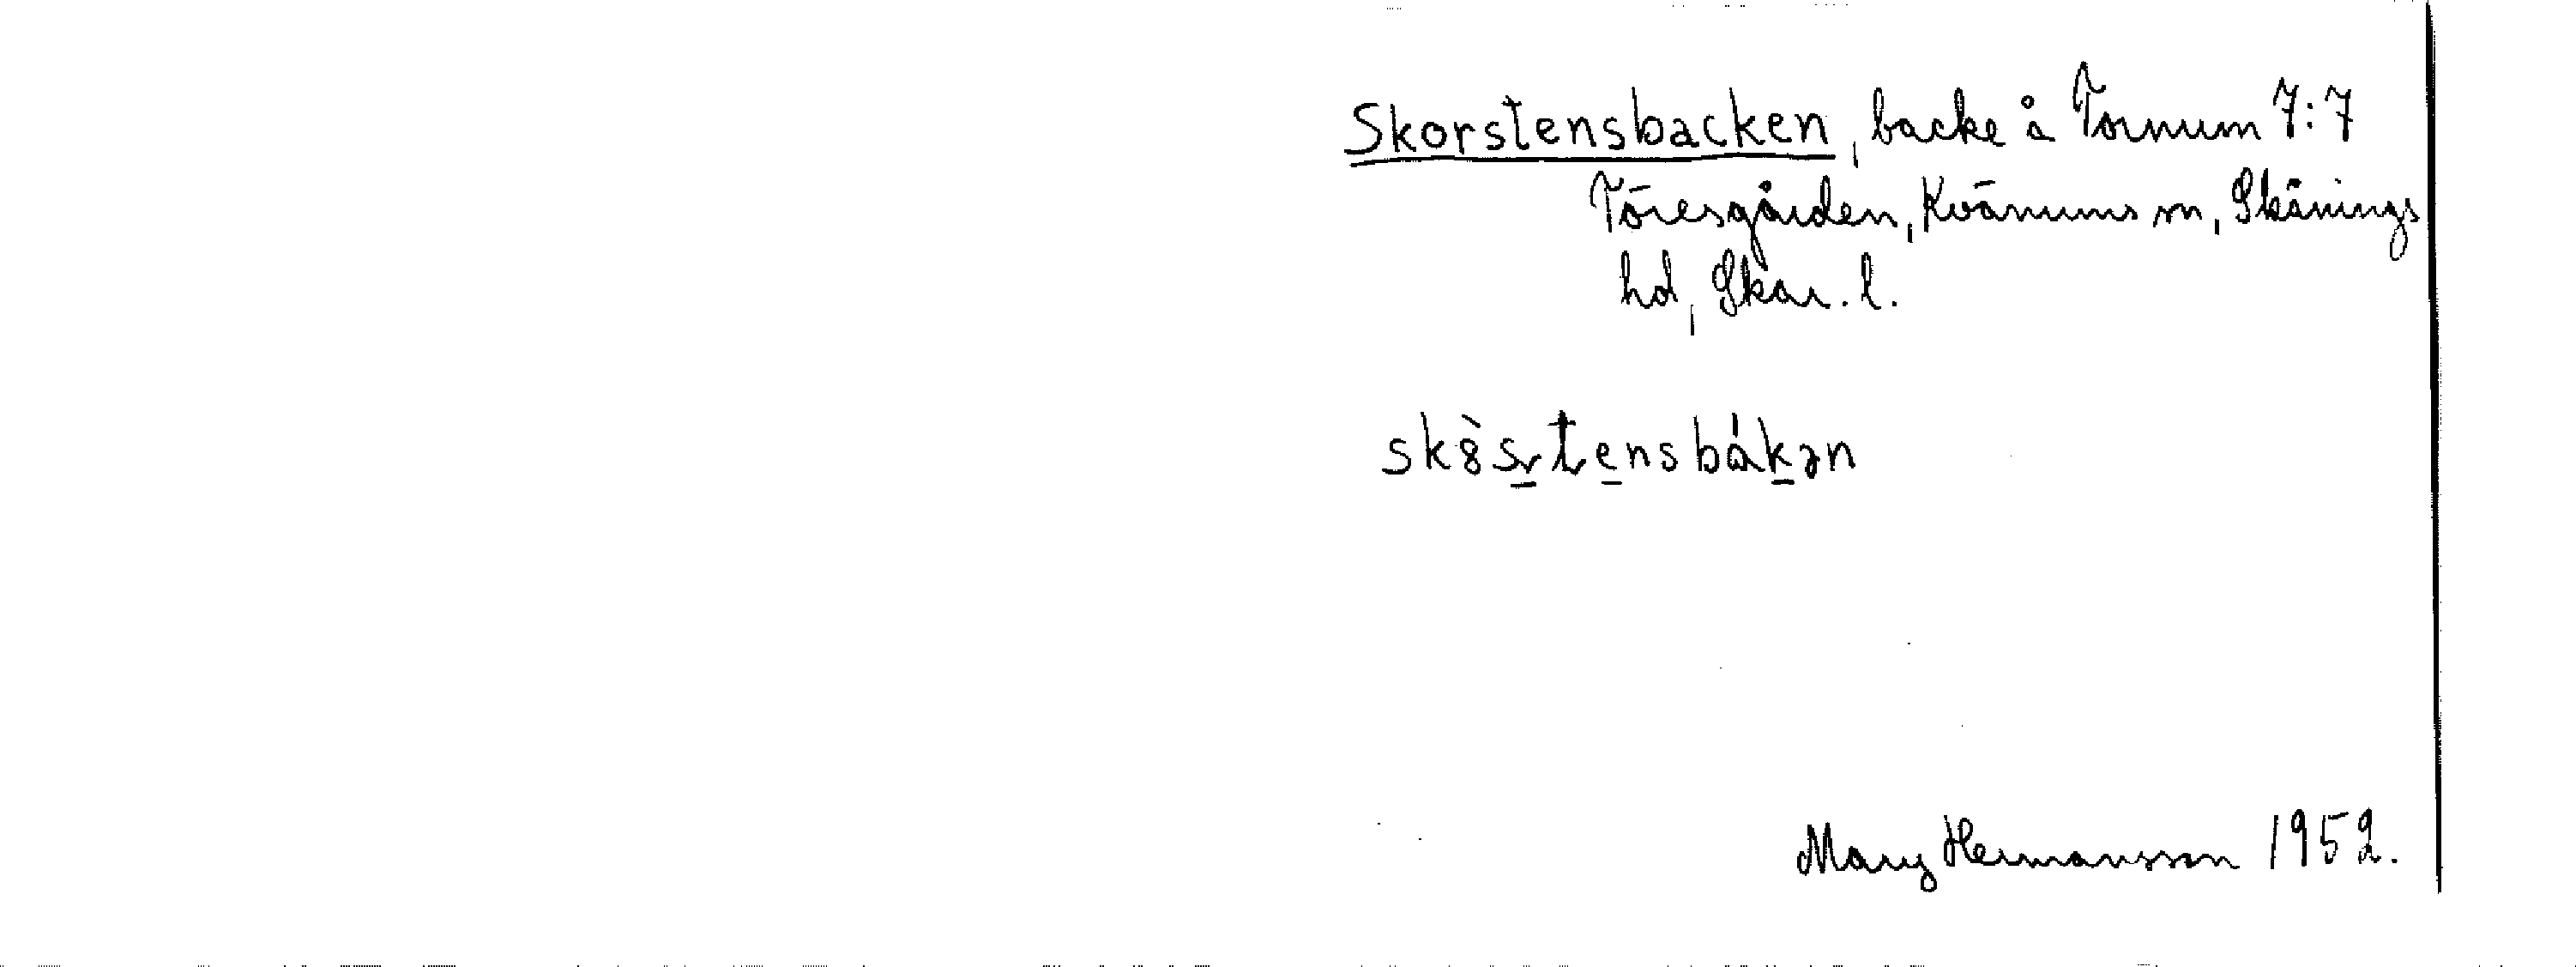 Skorstensbacken, backe å Tornum 7:7
Töresgården, Kvänums sn, Skånings
hd, Skar. l.
sk8̀s̱tensbákən
Mary Hermansson 1952.